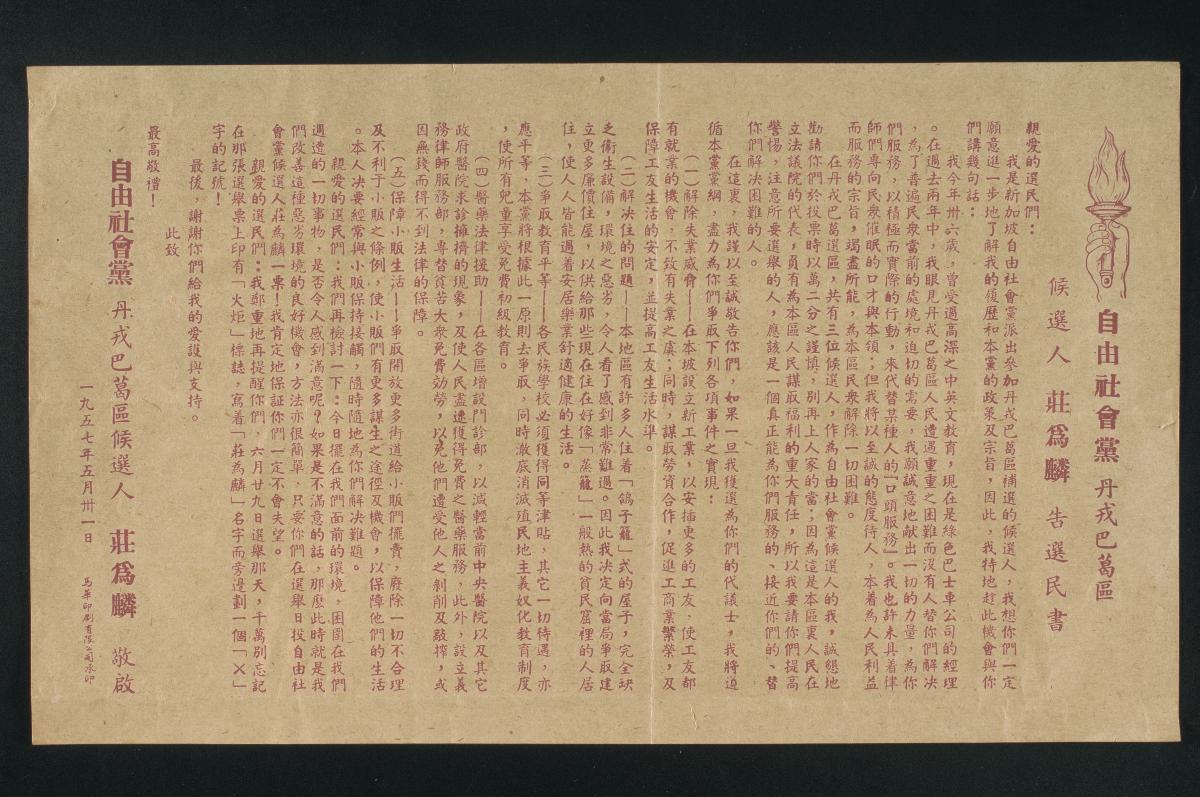 自由社會黨 丹戎巴葛區
候選人 莊爲麟 告選民書
親愛的選民們：
我是新加坡自由社會黨派出參加丹戎巴葛區補選的候選人，我想你們一定
願意進一步地了解我的履歷和本黨的政策及宗旨，因此，我特地趁此機會與你
們講幾句話：
我今年卅六歲，曾受過高深之中英文教育，現在是綠色巴士車公司的經理
。在過去兩年中，我眼見丹戎巴葛區人民遭遇重重之困難而沒有人替你們解決
，為了普遍民衆當前的處境和迫切的需要，我願誠意地献出一切的力量，為你
們服務，以積極而實際的行動，來代替某種人的「口頭服務」。我也許未具着律
師們專向民衆催眠的口才與本領；但我將以至誠的態度待人，本着為人民利益
而服務的宗旨，竭盡所能，為本區民衆解除一切困難。
在丹戎巴葛選區，共有三位候選人，作為自由社會黨候選人的我，誠懇地
勸請你們於投票時以萬二分之謹慎，別再上人家的當；因為這是本區裏人民在
立法議院的代表，負有為本區人民謀取福利的重大責任，所以我要請你們提高
警惕，注意所要選舉的人，應該是一個真正能為你們服務的、接近你們的、替
你們解決困難的人。
在這裏，我謹以至誠敬告你們，如果一旦我獲選為你們的代議士，我將遵
循本黨黨綱，盡力為你們爭取下列各項事件之實現：
（一）解除失業威脅——在本坡設立新工業，以安插更多的工友，使工友都
有就業的機會，不致有失業之虞；同時，謀取勞資合作，促進工商業繁榮，及
保障工友生活的安定，並提高工友生活水準。
（二）解决住的問題——本地區有許多人住着「鴿子籠」式的屋子，完全缺
乏衞生設備，環境之惡劣，令人看了感到非常難過。因此我决定向當局爭取建
立更多廉價住屋，以供給那些現在住在好像「蒸籠」一般熱的貧民窟裡的人居
住，使人人皆能過着安居樂業舒適健康的生活。
（三）爭取教育平等——各民族學校必須獲得同等津貼，其它一切待遇，亦
應平等，本黨將根據此一原則去爭取，同時澈底消滅殖民地主義奴化教育制度
，使所有兒童享受免費初級教育。
（四）醫藥法律援助——在各區增設門診部，以減輕當前中央醫院以及其它
政府醫院求診擁擠的現象，及使人民盡速獲得免費之醫藥服務，此外，設立義
務律師服務部，專替貧苦大衆免費効勞，以免他們遭受他人之剝削及敲搾，或
因無錢而得不到法律的保障。
（五）保障小販生活——爭取開放更多街道給小販們擺賣，廢除一切不合理
及不利于小販之條例，使小販們有更多謀生之途徑及機會，以保障他們的生活
。本人決要經常與小販保持接觸，隨時隨地為你們解決難題。
親愛的選民們：我們再檢討一下：今日擺在我們面前的環境，困圍在我們
週遭的一切事物，是否令人感到滿意呢？如果是不滿意的話，那麼此時就是我
們改善這種惡劣環境的良好機會，方法亦很簡單，只要你們在選舉日投自由社
會黨候選人莊為麟一票！我肯定地保証你們一定不會失望。
親愛的選民們：我鄭重地再提醒你們，六月廿九日選舉那天，千萬別忘記
在那張選舉票上印有「火炬」標誌，寫着「莊為麟」名字而旁邊劃一個「X」
字的記號！
最後，謝謝你們給我的愛護與支持。
此致
最高敬禮！
自由社會黨 丹戎巴葛區候選人 莊爲麟 敬啟
一九五七年五月卅一日
馬華印刷有限公司承印